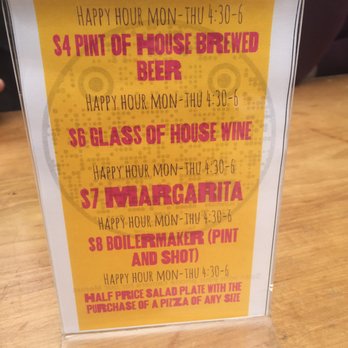 HAPPY HOUR MON-THU 4:30-6
$4 PINT OF HOUSE BREWED
BEER
HAPPY HOUR MON-THU 4:30-6
$6 GLASS OF HOUSE WINE
HAPPY HOUR MON-THU 4:30-6
$7 MARGARITA
HAPPY HOUR MON-THU 4:30-6
$8 BOILERMAKER (PINT
AND SHOT)
HAPPY HOUR MON-THU 4:30-6
HALF PRICE SALAD PLATE WITH THE
PURCHASE OF A PIZZA OF ANY SIZE